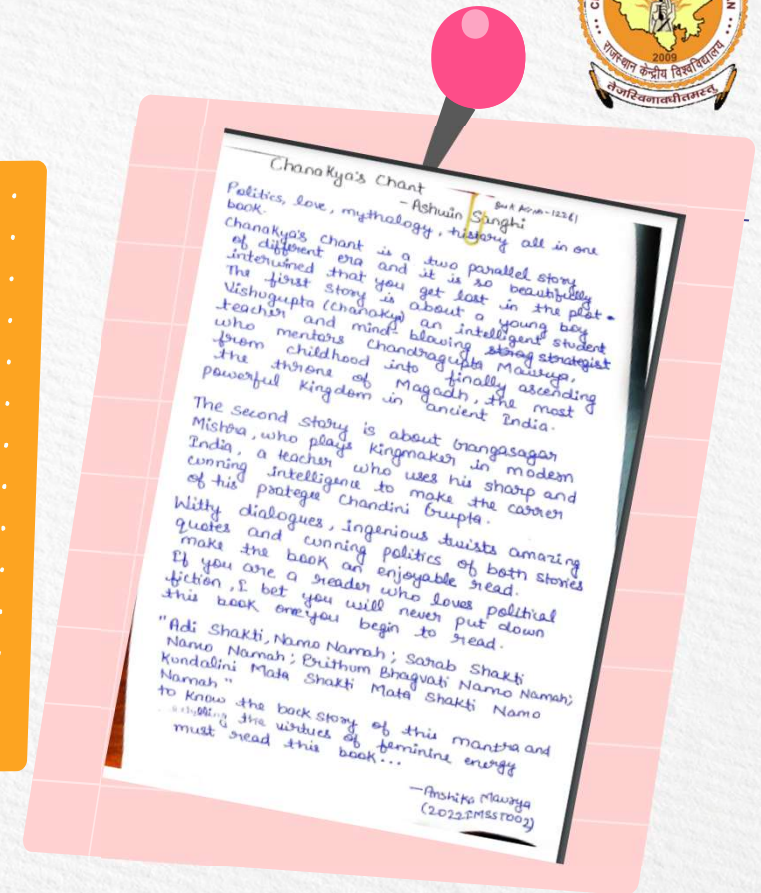 2009
राजस्थान केन्द्रीय विश्वविद्यालय
तेजस्विनावधीतमस्तु
Chanakya's Chant
- Ashwin Sanghi
Politics, love, mythology, history all in one
book.
Chanakya's Chant is a two parallel story
of different era and it is so beautifully
interwined that you get lost in the plot.
The first story is about a young boy
Vishugupta (Chanakya) an intelligent student
teacher and mind-blowing strag strategist
who mentors Chandragupta Maurya,
from childhood into finally ascending
the throne of Magadh, the most
powerful Kingdom in ancient India.
The second story is about Gangasagar
Mishra, who plays Kingmaker in modern
India, a teacher who uses his sharp and
cunning intelligence to make the carrer
of his protegee Chandini Gupta.
Witty dialogues, ingenious twists amazing
quotes and cunning politics of both stories
make the book an enjoyable read.
If you are a reader who loves political
fiction, I bet you will never put down
this book once you begin to read.
"Adi Shakti, Namo Namah; Sarab Shakti
Namo Namah; Prithum Bhagvati Namo Namah;
Kundalini Mata Shakti Mata Shakti Namo
Namah"
to know the back story of this mantra and
the virtues of feminine energy
must read this book...
- Anshika Maurya